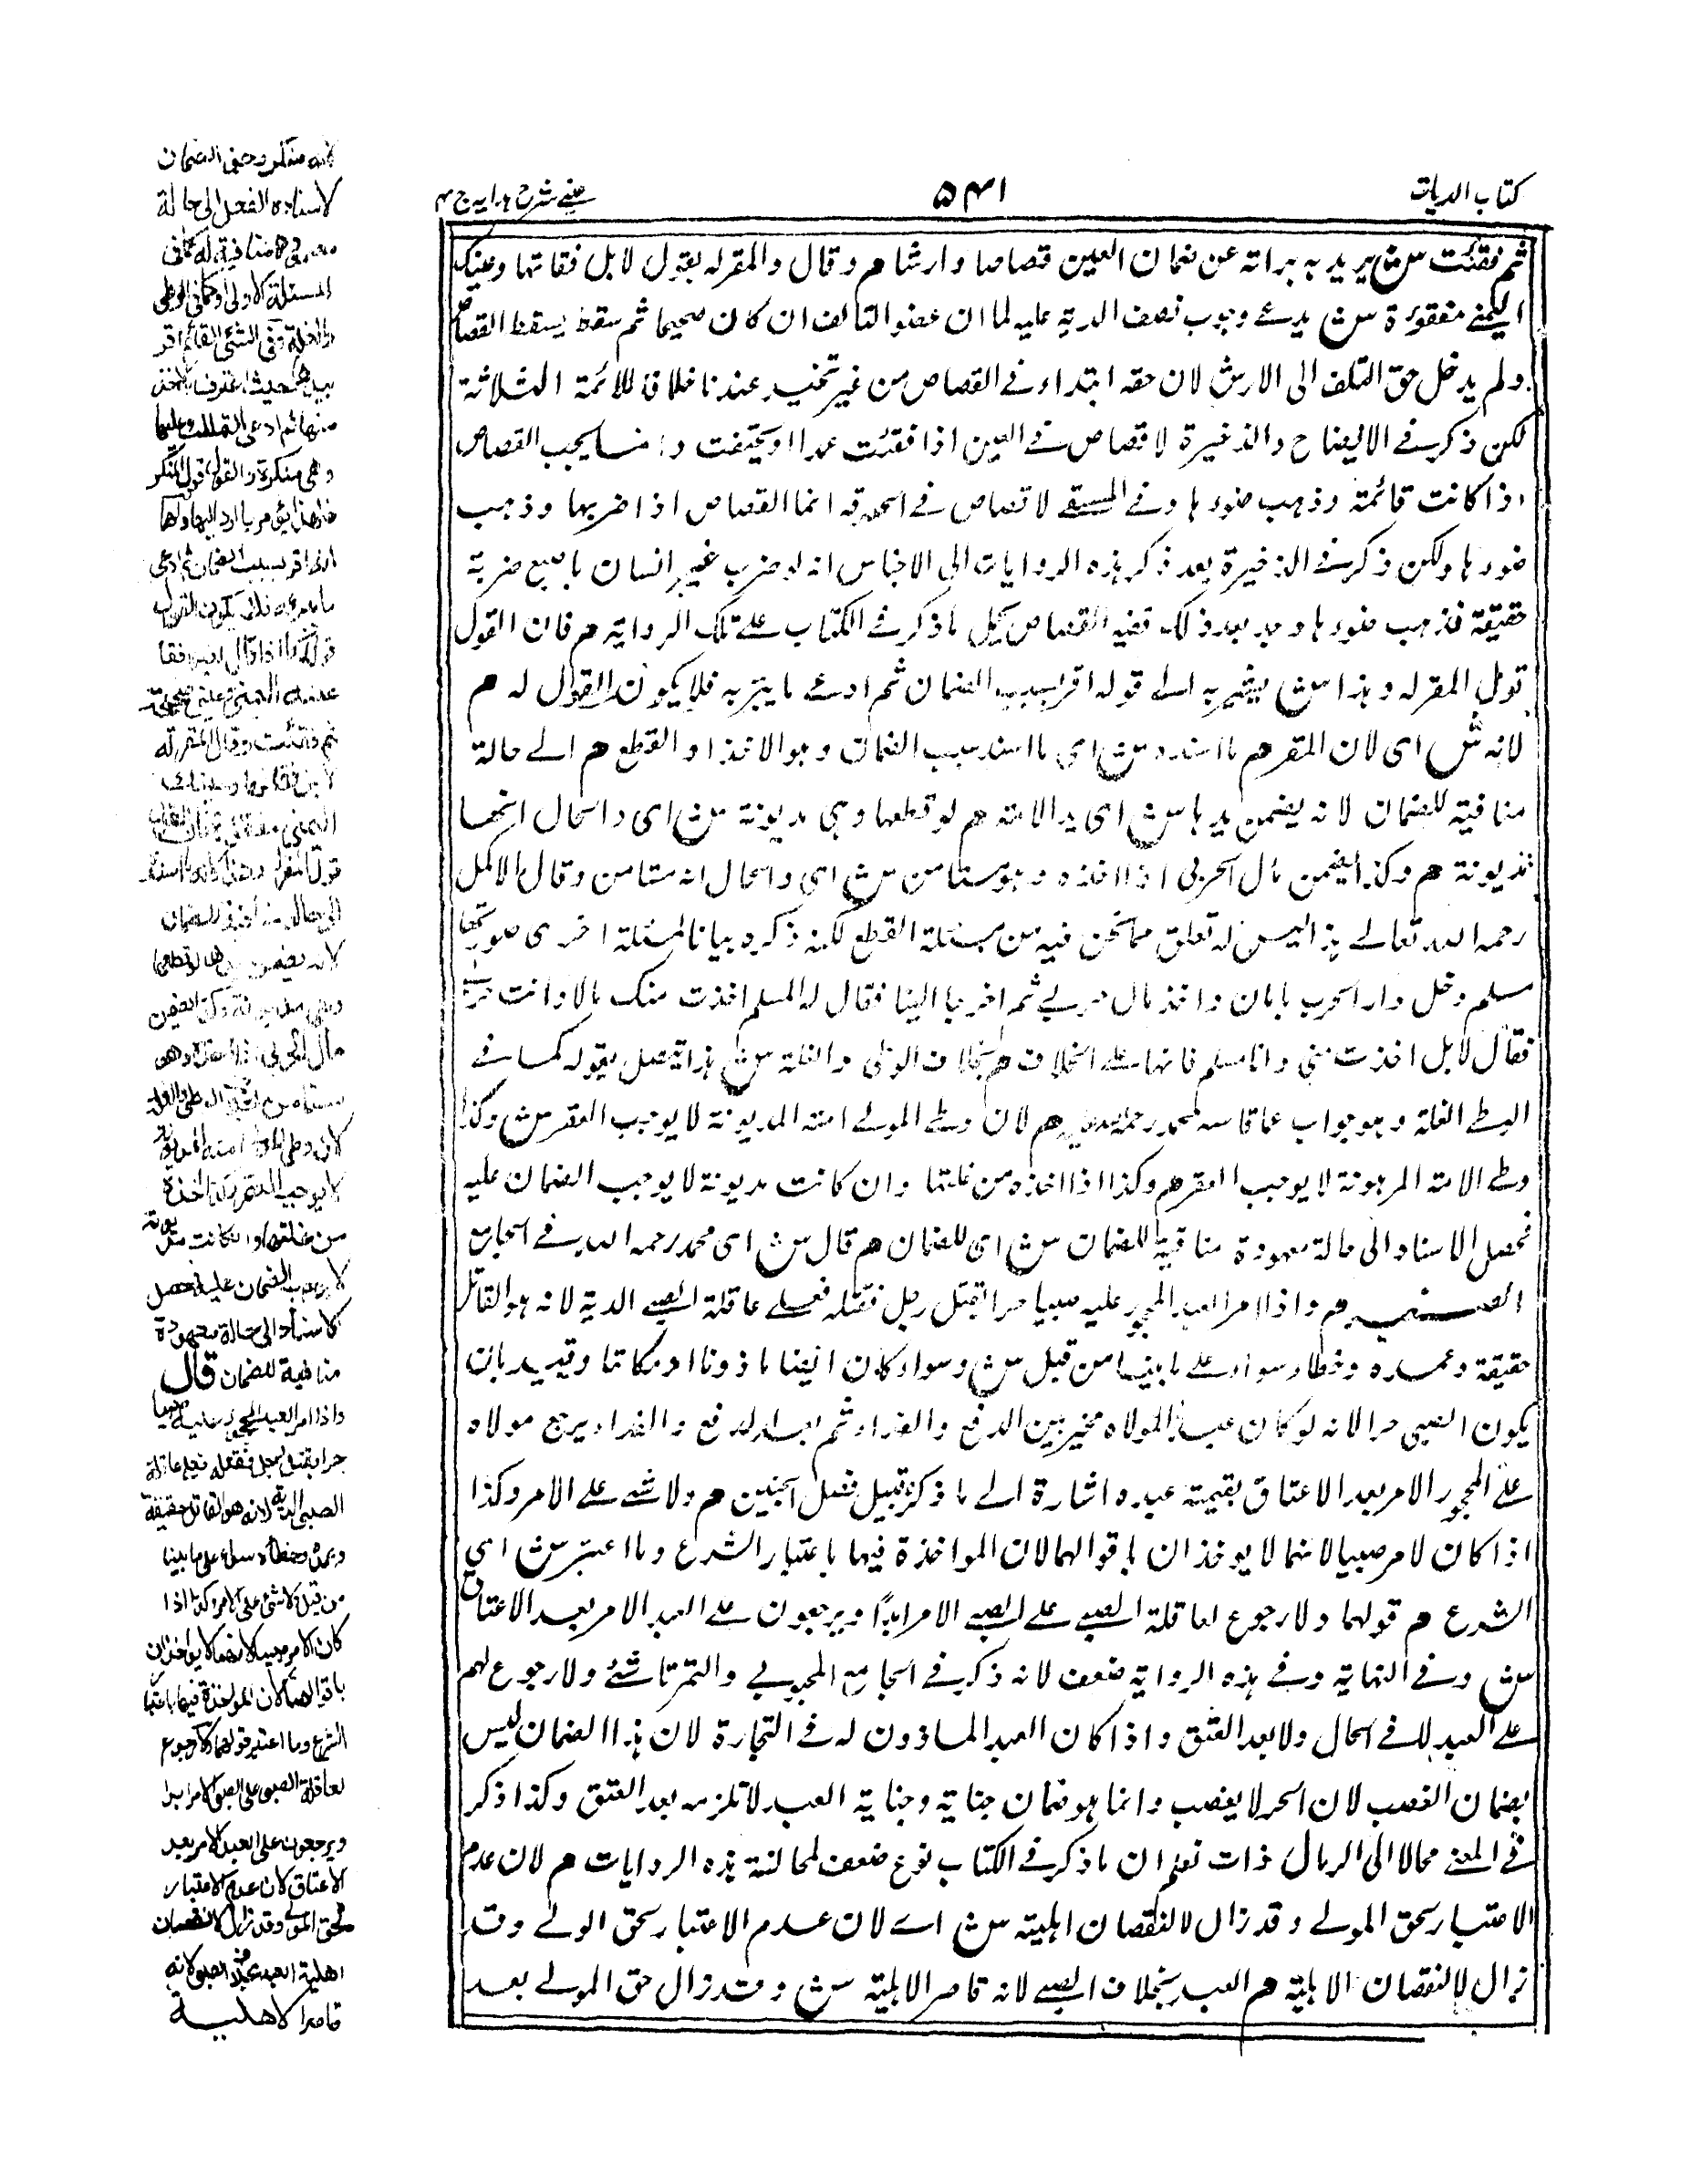 كتاب الديات
٥٤١
عينى شرح هدايه ج ٤
ثم فقئت ش يريد به براته عن ضمان العين قصاصا وارشا م وقال والمقر له يقول لا بل فقاتها وعينك
اليمنى مفقوءة ش يدعى وجوب نصف الدية عليه لما ان عضو التالف ان كان صحيحا ثم سقط يسقط القصاص
ولم يدخل حق التلف الى الارش لان حقه ابتداء فى القصاص من غير تخيير عندنا خلافا للائمة الثلاثة
لكن ذكر فى الايضاح والذخيرة لا قصاص فى العين اذا فقئت عمدا او وانما يجب القصاص
اذا كانت قائمة وذهب ضوءها وفى المنتقى لا قصاص فى الحدقة انما القصاص اذا ضربها وذهب
ضوءها ولكن ذكر فى الذخيرة بعد ذكر هذه الروايات الى الاجناس انه لو ضرب عين انسان باصبع ضربة
حقيقة فذهب ضوءها وبعد ذلك فيه القصاص ما ذكر فى الكتاب على تلك الرواية م فان القول
قول المقر له وهذا ش يشير به الى قوله اقر بسبب الضمان ثم ادعى ما يبريه فلا يكون القول له م
لانه ش اى لان المقر م ما اسند ش اى ما اسند سبب الضمان وهو الاخذ او القطع م الى حالة
منافية للضمان لانه يضمن يدها ش اى يد الامة م لو قطعها وهى مديونة ش اى والحال انها
مديونة م وكذا يضمن مال الحربى اذا اخذه وهو مستامن ش اى والحال انه مستامن وقال الاكمل
رحمه الله تعالى هذا ليس له تعلق مما نحن فيه من مسئلة القطع لكنه ذكره بيانا لمسئلة اخرى صورتها
مسلم دخل دار الحرب بامان واخذ مال حربى ثم اخرجا الينا فقال له المسلم اخذت منك مالا وانت حربى
فقال لا بل اخذت منى وانا مسلم فانها على الخلاف م بخلاف الوطى والغلة ش هذا يتصل بقوله كما فى
الوطى الغلة وهو جواب عما قاسه محمد رحمه الله م لان وطى المولى امته المديونة لا يوجب العقر ش وكذا
وطى الامة المرهونة لا يوجب العقر م وكذا اذا اخذه من غلتها وان كانت مديونة لا يوجب الضمان عليه
فحصل الاسناد الى حالة معهودة منافية للضمان ش اى للضمان م قال ش اى محمد رحمه الله فى الجامع
الصغير م واذا امر العبد المحجور عليه صبيا حرا بقتل رجل فقتله فعلى عاقلة الصبى الدية لانه هو القاتل
حقيقة وعمده وخطاه سواء على ما بينا من قبل ش وسواء كان ايضا ماذونا او مكاتبا وقيد بان
يكون الصبى حرا لانه لو كان عبدا المولاه مخير بين الدفع والفداء ثم بعد الدفع والفداء يرجع مولاه
على المحجور الامر بعد الاعتاق بقيمة عبده اشارة الى ما ذكر قبيل فصل الجنين م ولا شى على الامر وكذا
اذا كان لامر صبيا لانهما لا يوخذان باقوالهما لان المواخذة فيها باعتبار الشرع وما اعتبر ش اى
الشرع م قولهما ولا رجوع لعاقلة الصبى على الصبى الامر ابدا ويرجعون على العبد الامر بعد الاعتاق
ش وفى النهاية وفى هذه الرواية ضعف لانه ذكر فى الجامع المحبوبى والتمرتاشى ولا رجوع لهم
على العبد لا فى الحال ولا بعد العتق واذا كان العبد الماذون له فى التجارة لان هذا الضمان ليس
بضمان الغصب لان الحر لا يغصب وانما هو ضمان جناية وجناية العبد لا تلزمه بعد العتق وكذا ذكر
فى المغنى محالا الى الزيادات نعلم ان ما ذكر فى الكتاب نوع ضعف لمخالفة هذه الروايات م لان عدم
الاعتبار لحق المولى وقد زال لا لنقصان اهليته ش اى لان عدم الاعتبار لحق المولى وقد
زال لا لنقصان الاهلية م العبد بخلاف الصبى لانه قاصر الاهلية ش وقد زال حق المولى بعد
لاسناده الفعل الى حالة
معهودة منافية له كما فى
المسئلة الاولى وكما فى الوطى
والغلة وفى الشئ القائم اقر
بيدها حيث اعترف بالاخذ
منها ثم ادعى التملك عليها
وهى منكرة والقول قول المنكر
اليمنى وعينى صحيحة
ثم فقئت وقال المقر له
الى حالة منافية للضمان
لانه يضمن يدها لو قطعها
وهى مديونة وكذا يضمن
مال الحربى اذا اخذه وهو
مستامن بخلاف الوطى والغلة
لان وطى المولى امته المديونة
لا يوجب العقر وكذا اخذه
من غلتها وان كانت مديونة
لا يوجب الضمان عليه فحصل
الاسناد الى حالة معهودة
منافية للضمان قال
واذا امر العبد المحجور عليه صبيا
حرا بقتل رجل فقتله فعلى عاقلة
الصبى الدية لانه هو القاتل حقيقة
وعمده وخطاه سواء على ما بينا
من قبل ولا شئ على الامر وكذا اذا
كان الامر صبيا لانهما لا يواخذان
باقوالهما لان المواخذة فيها باعتبار
الشرع وما اعتبر قولهما ولا رجوع
لعاقلة الصبى على الصبى الامر ابدا
ويرجعون على العبد الامر بعد
الاعتاق لان عدم الاعتبار
لحق المولى وقد زال لا لنقصان
اهلية العبد بخلاف الصبى لانه
قاصر الاهلية